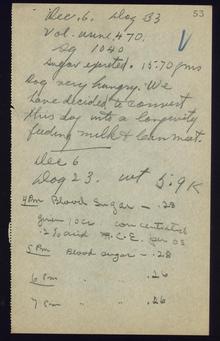 53
Dec. 6. Dog 33
Vol. urine, 470.
Sg 1040
Sugar excreted. 15.70 gms
Dog very hungry. We
have decided to convert
this dog into a longevity
feeding milk & lean meat.
Dec 6
Dog 23. wt 5.9 K
4 Pm Blood Sugar - .28
given 10cc concentrated
.2% acid A.C.E. per os
5 Pm Blood sugar - .28
6 Pm " " .26
7 Pm " " .26